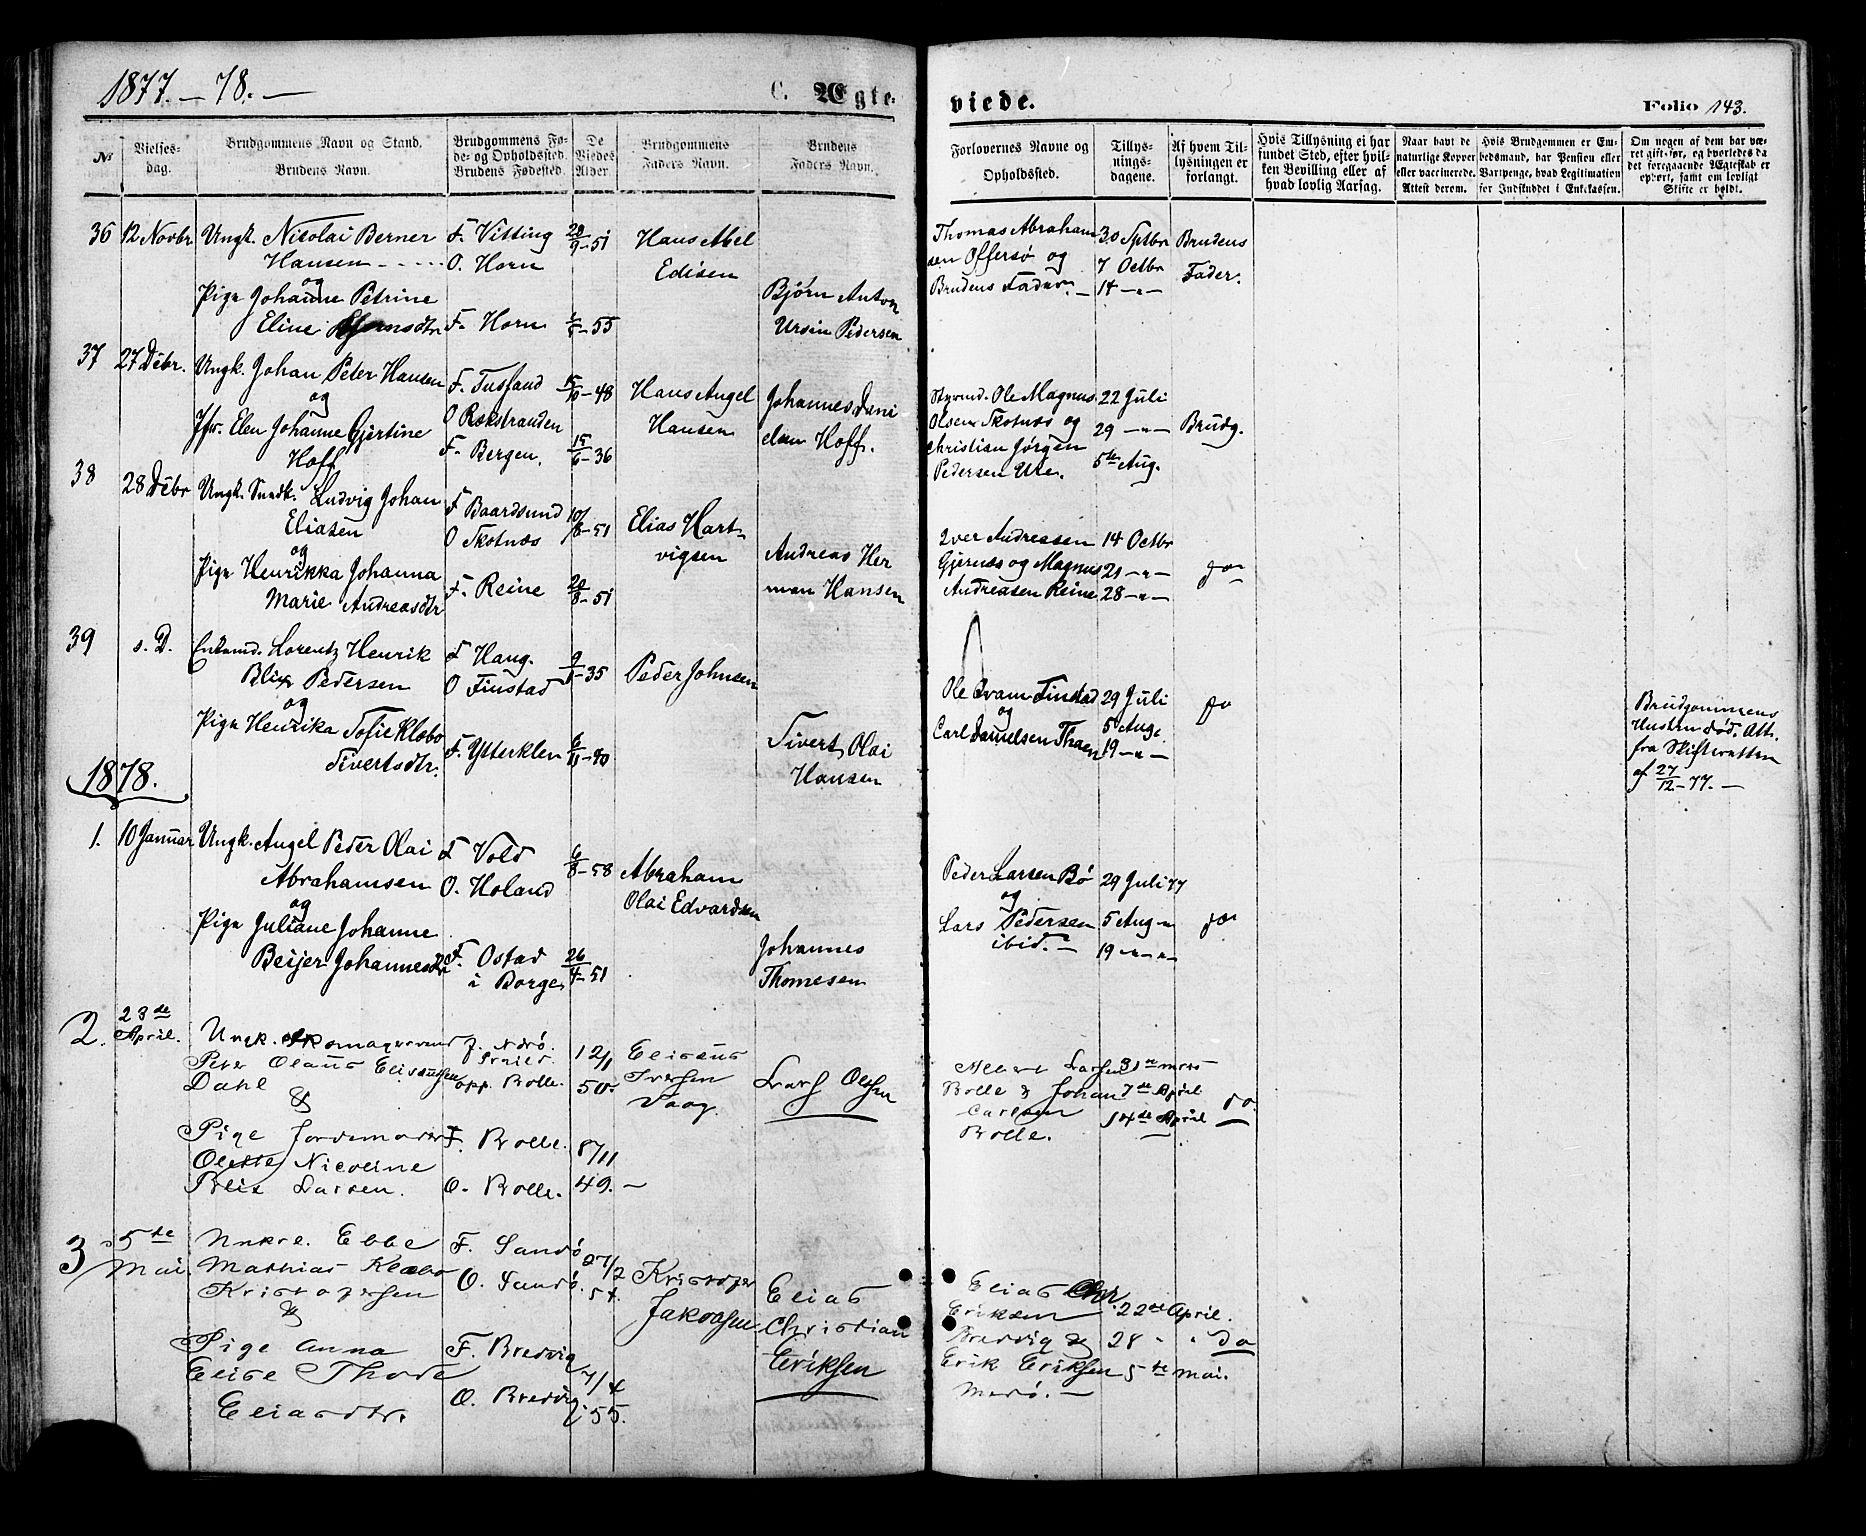 1877. – 78. –
C. Ægte-
viede.
Folio 143.
№
Vielses-
dag.
Brudgommens Navn og Stand.
Brudens Navn.
Brudgommens Fø-
de- og Opholdssted.
Brudens Fødested.
De
Viedes
Alder.
Brudgommens
Faders Navn.
Brudens
Faders Navn.
Forlovernes Navne og
Opholdssted.
Tillys-
nings-
dagene.
Af hvem Til-
lysningen er
forlangt.
Hvis Tillysning ei har
fundet Sted, efter hvil-
ken Bevilling eller af
hvad lovlig Aarsag.
Naar havt de
naturlige Kopper
eller vaccinerede.
Attest derom.
Hvis Brudgommen er Em-
bedsmand, har Pension eller
Vartpenge, hvad Legitimation
for Indskuddet i Enk.kassen.
Om nogen af dem har væ-
ret gift før, og hvorledes da
det foregaaende Ægteskab er
ophørt, samt om lovligt
Skifte er holdt.
36
12 Novbr
Ungk. Nicolai Berner
Hansen
og
Pige Johanne Petrine
Eline Bjørnsdtr
F. Vitting
O. Horn
F. Horn
20/9 – 51
6/6 – 55
Hans Abel
Edisen
Bjørn Anton
Ursin Pedersen
Thomas Abraham
sen Offersø og
Brudens Fader. –
30 Sptbr
7 Octbr
14 – " –
Brudens
Fader.
37
27 Debr.
Ungk. Johan Peter Hansen
og
Jfr. Elen Johanne Gjertine
Hoff
F. Tusfand
O Rækstranden
F. Bergen.
15/10 – 48
15/6 – 36
Hans Angel
Hansen
Johannes Dani
elsen Hoff.
Styrmd. Ole Magnus
Olsen Skotnæs og
Christian Jørgen
Pedersen Ure.
22 Juli
29 – " –
5te Aug.
Brudg.
38
28 Debr
Ungk. Ludvig Johan
Eliasen
og
Pige Henrikka Johanna
Marie Andreasdtr
F Baardsund
O Skotnæs
F. Reine
10/8 – 51
20/8 – 51
Elias Hart-
vigsen
Andreas Her
man Hansen
Iver Andreasen
Gjernæs og Magnus
Andreasen Reine
14 Octbr
21 – " –
28 – " –
do
39
s. D.
Enkemd. Lorentz Henrik
Blix Pedersen
og
Pige Henrika Sofie Klæbo
Sivertsdtr.
F Haug.
O Finstad
F. Ytterklep
9/1 – 35
6/11 – 40
Peder Johnsen
Sivert Olai
Hansen
Ole Evam Finstad
og
Carl Danielsen Thaen
29 Juli
5 Aug.
19 – " –
do
Brudgommens
Hustru død. Att.
fra Skifteretten
af 27/12 – 77. –
1878.
1.
10 Januar
Ungk. Angel Peder Olai
Abrahamsen
og
Pige Juliane Johanne
Beijer Johannesdtr
F Vold
O. Holand
F. Ostad
i Borge
6/8 – 58
26/4 – 51
Abraham
Olai Edvardsen
Johannes
Thomesen
Peder Larsen Bø
og
Lars Pedersen
ibid. –
29 Juli 77
5 Aug "
19 – " – " –
do
2.
23de
April.
Ungk. Skomagersvend
Peter Olaus Elisæussen
Dahl
&
Pige Jordemoder
Olette Nicoline
Blix Larsen.
opp. Bolle.
F. Bolle.
O. Bolle.
12/1
50.
8/11
49. –
Elisæus
Iversen
Vaag.
Lars Olsen
Larsen
Bolle & Johan
Carlsen
Bolle.
31te Mars
7de April
14de April
do.
3
5te
Mai.
Ungkrl. Ebbe
Mathias Klæbo
Kristofersen
&
Pige Anna
Elise Thode
Eliasdtr.
F. Sandø
O. Sandø.
F. Bredvig
O. Bredvig.
27/2
54.
7/4
55.
Kristofer
Jakobsen
Elias
Christian
Eriksen
Elias Chr.
Eriksen
Bredvig &
Erik Eriksen
22de April.
28 "
5te Mai.
do